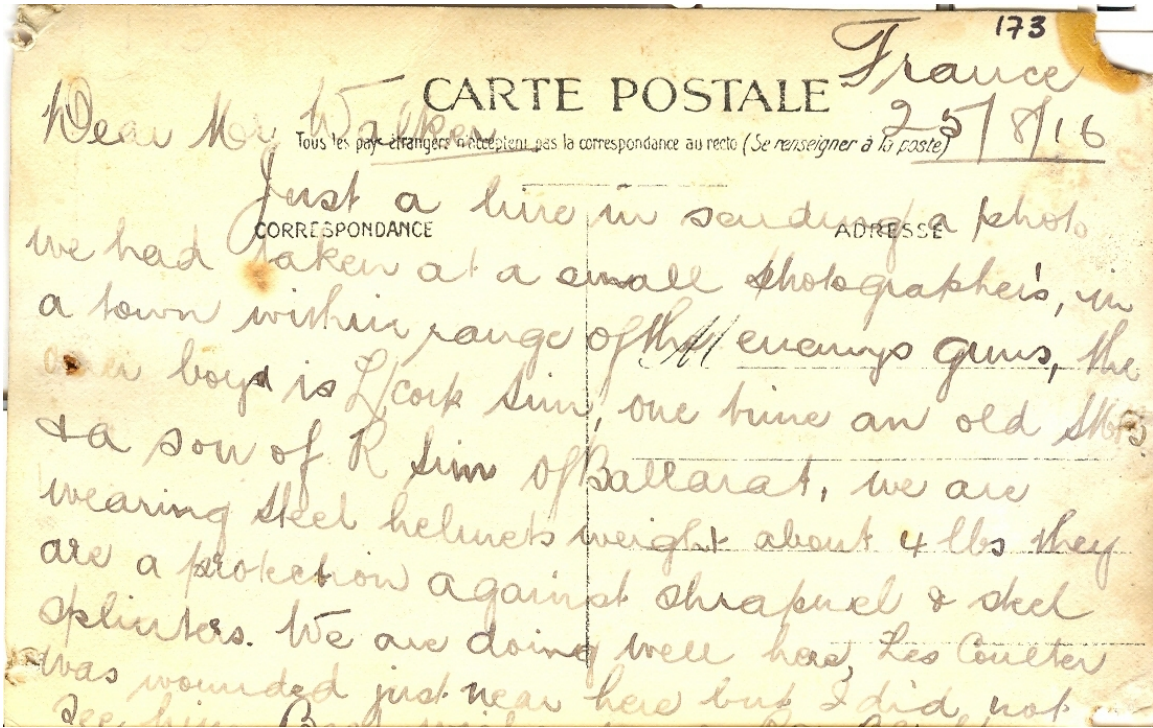 173
France
CARTE POSTALE
25/8/16
Dear Mr Walker
Tous les pays étrangers n'acceptent pas la correspondance au recto (Se renseigner à la poste)
Just a line in sending a photo
CORRESPONDANCE
ADRESSE
we had taken at a small photographers, in
a town within range of the enemys guns, the
other boys is L/corp Sim, one time an old
& a son of R Sim of Ballarat, we are
wearing steel helmets weight about 4 lbs they
are a protection against shrapnel & steel
splinters. We are doing well here, Les Coulter
was wounded just near here but I did not
See him